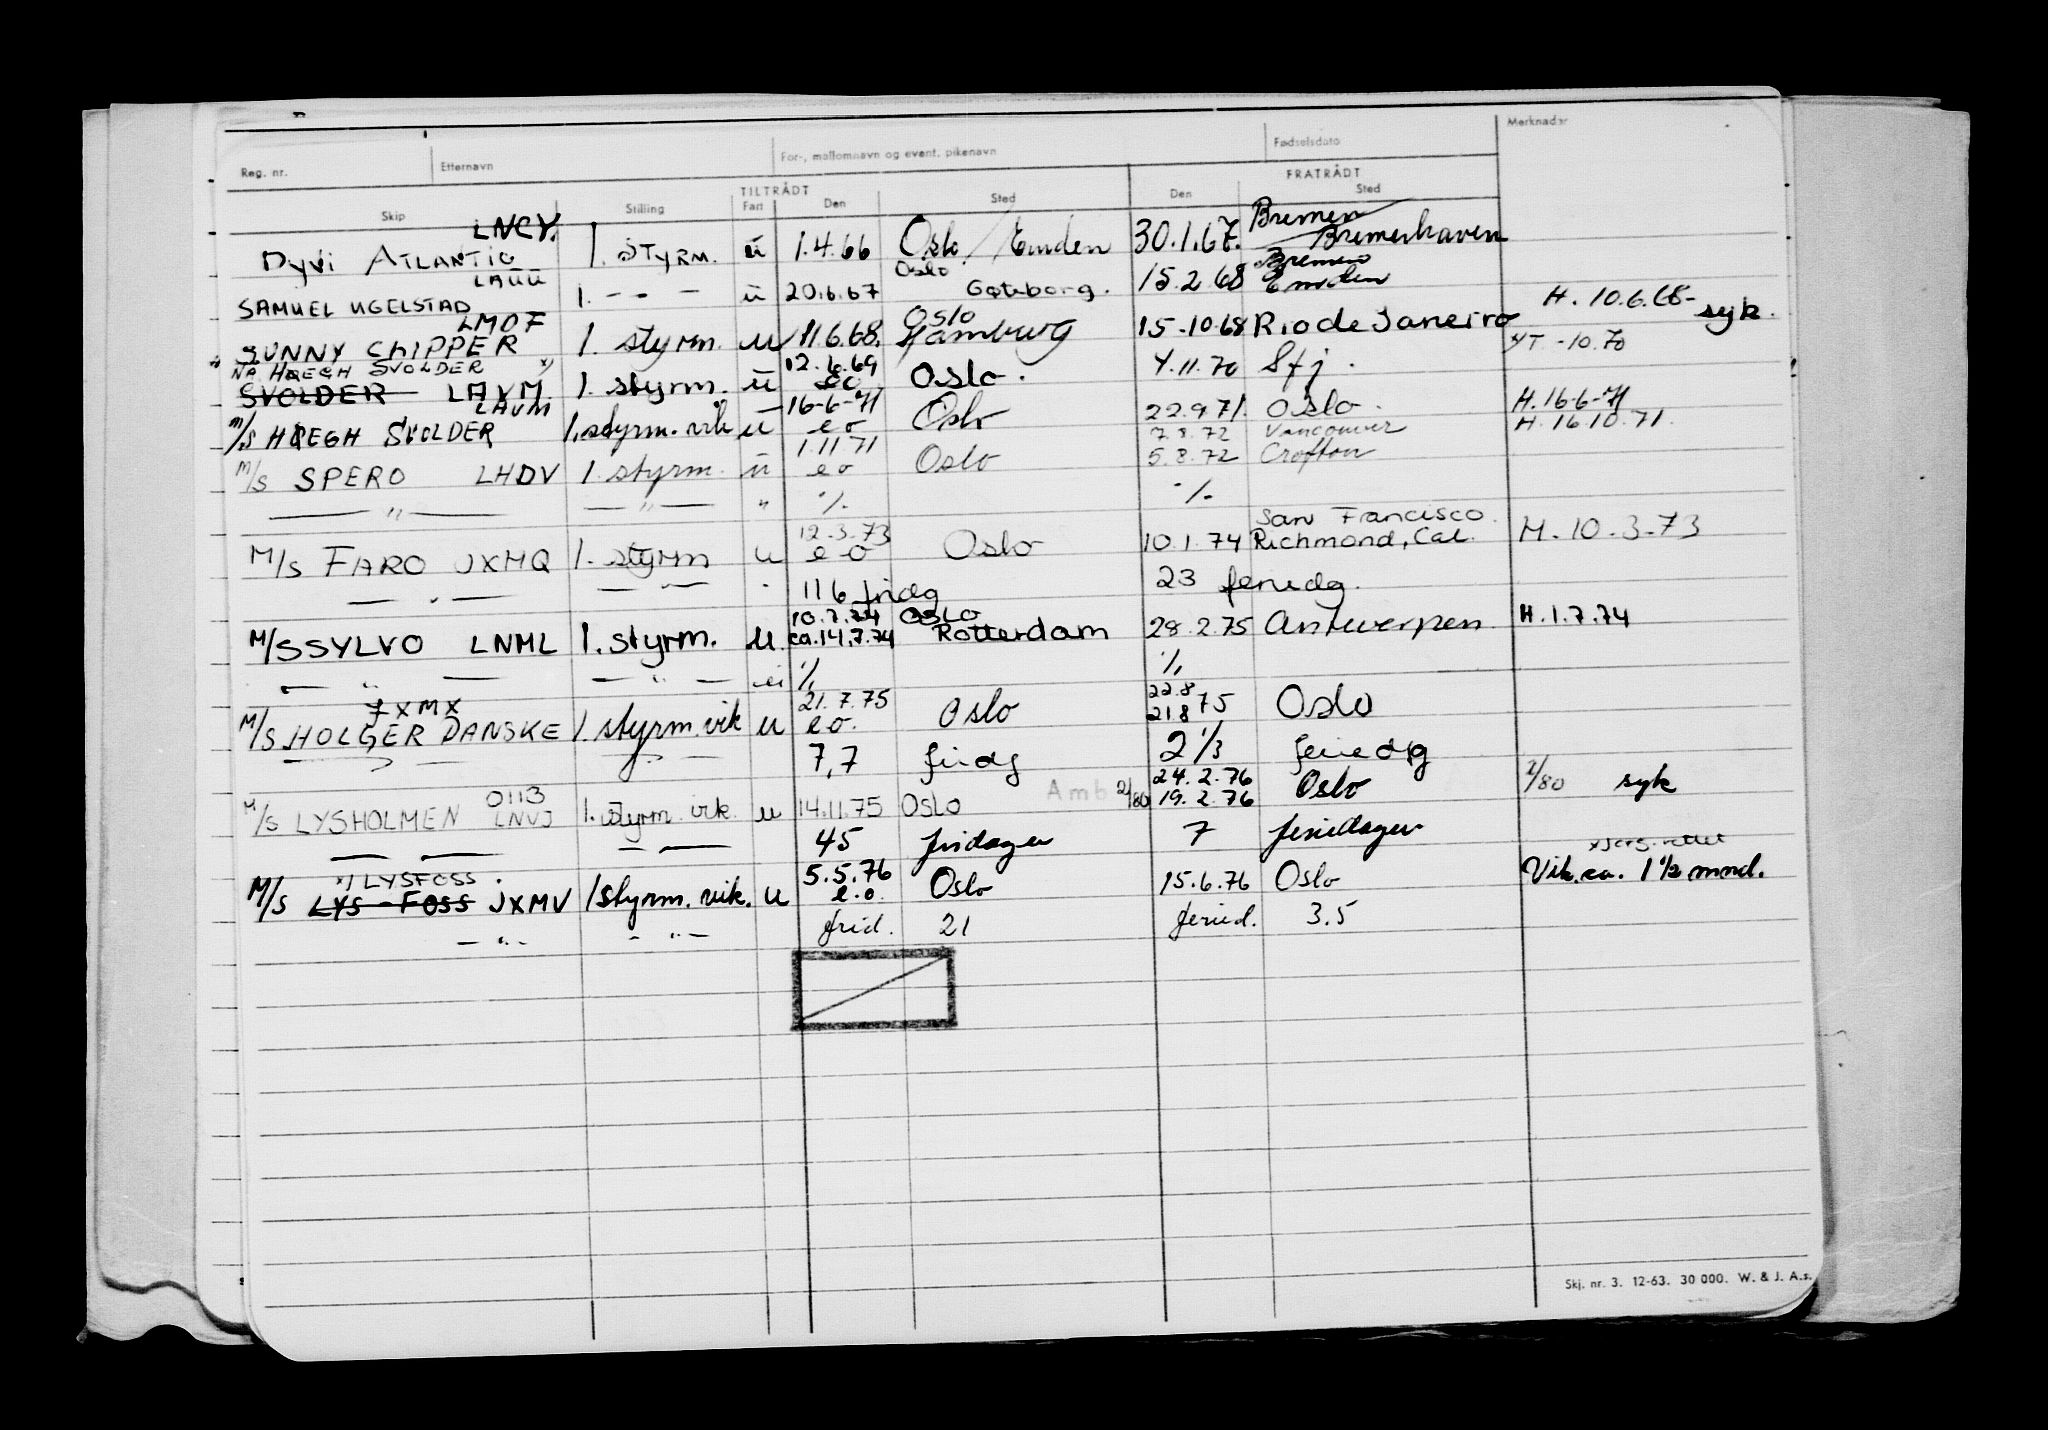 Reg. nr. Etternavn For-, mellomnavn og event. pikenavn Fødselsdato Merknader
TILTRÅDT FRATRÅDT
Skip Stilling Fart Den Sted Den Sted
LNCY. Bremen
Dyvi ATLANTIC 1. STYRM. u 1.4.66 Oslo / Emden 30.1.67. Bremerhaven
LAUU Oslo Bremen
SAMUEL UGELSTAD 1. - " - u 20.6.67 Gøteborg. 15.2 68 Emden
LMOF Oslo H. 10.6.68- syk.
SUNNY CLIPPER 1. styrm. u 11.6.68. Hamburg 15.-10.68 Rio de Janeiro
NÅ HØEGH SVOLDER x) 12.6.69 YT -10.70
SVOLDER LAVM. 1. styrm. u eo Oslo. 4.11.70 Sfj.
LAVM 16-6-71 H. 16-6-71
M/S HØEGH SVOLDER 1. styrm. vik u eo Oslo 22.9 71. Oslo. H. 16.10.71.
1.11 71 7.8.72 Vancouver
M/S SPERO LHDV 1. styrm. u eo Oslo 5.8.72 Crofton
— " — — " — " ./. ./.
12.-3.-73 San Francisco.
M/S FARO JXMQ 1. styrm u eo Oslo 10.1.74 Richmond, Cal. M. 10.-3.-73
— " — — " — " 116 fridg 23 feriedg.
10.7.74 Oslo
M/S SYLVO LNML 1. styrm. u. ca. 14.7.74 Rotterdam 28.2.75 Antwerpen H. 1.7.74
— " — — " — ./. ./.
JXMX 21.7.75 22.8
M/S HOLGER DANSKE 1. styrm. vik u eo. Oslo 21 8 75 Oslo
— " — — " — 7,7 fridg 2 1/3 feriedg
24.2.76 Oslo 2/80 syk
M/S LYSHOLMEN 0113 LNVJ 1. styrm. vik. u 14.11.75 OSLO Amb 2/80 19.2.76
— — — — 45 fridager 7 feriedager
x) LYSFOSS 5.5.76
M/S LYS-FOSS JXMV 1 styrm. vik. u e.o. Oslo 15.6.76 Oslo Vik. ca. 1 1/2 mnd.
— " — - " - frid. 21 feried. 3.5
Skj. nr. 3. 12-63. 30 000. W. & J. A.s.